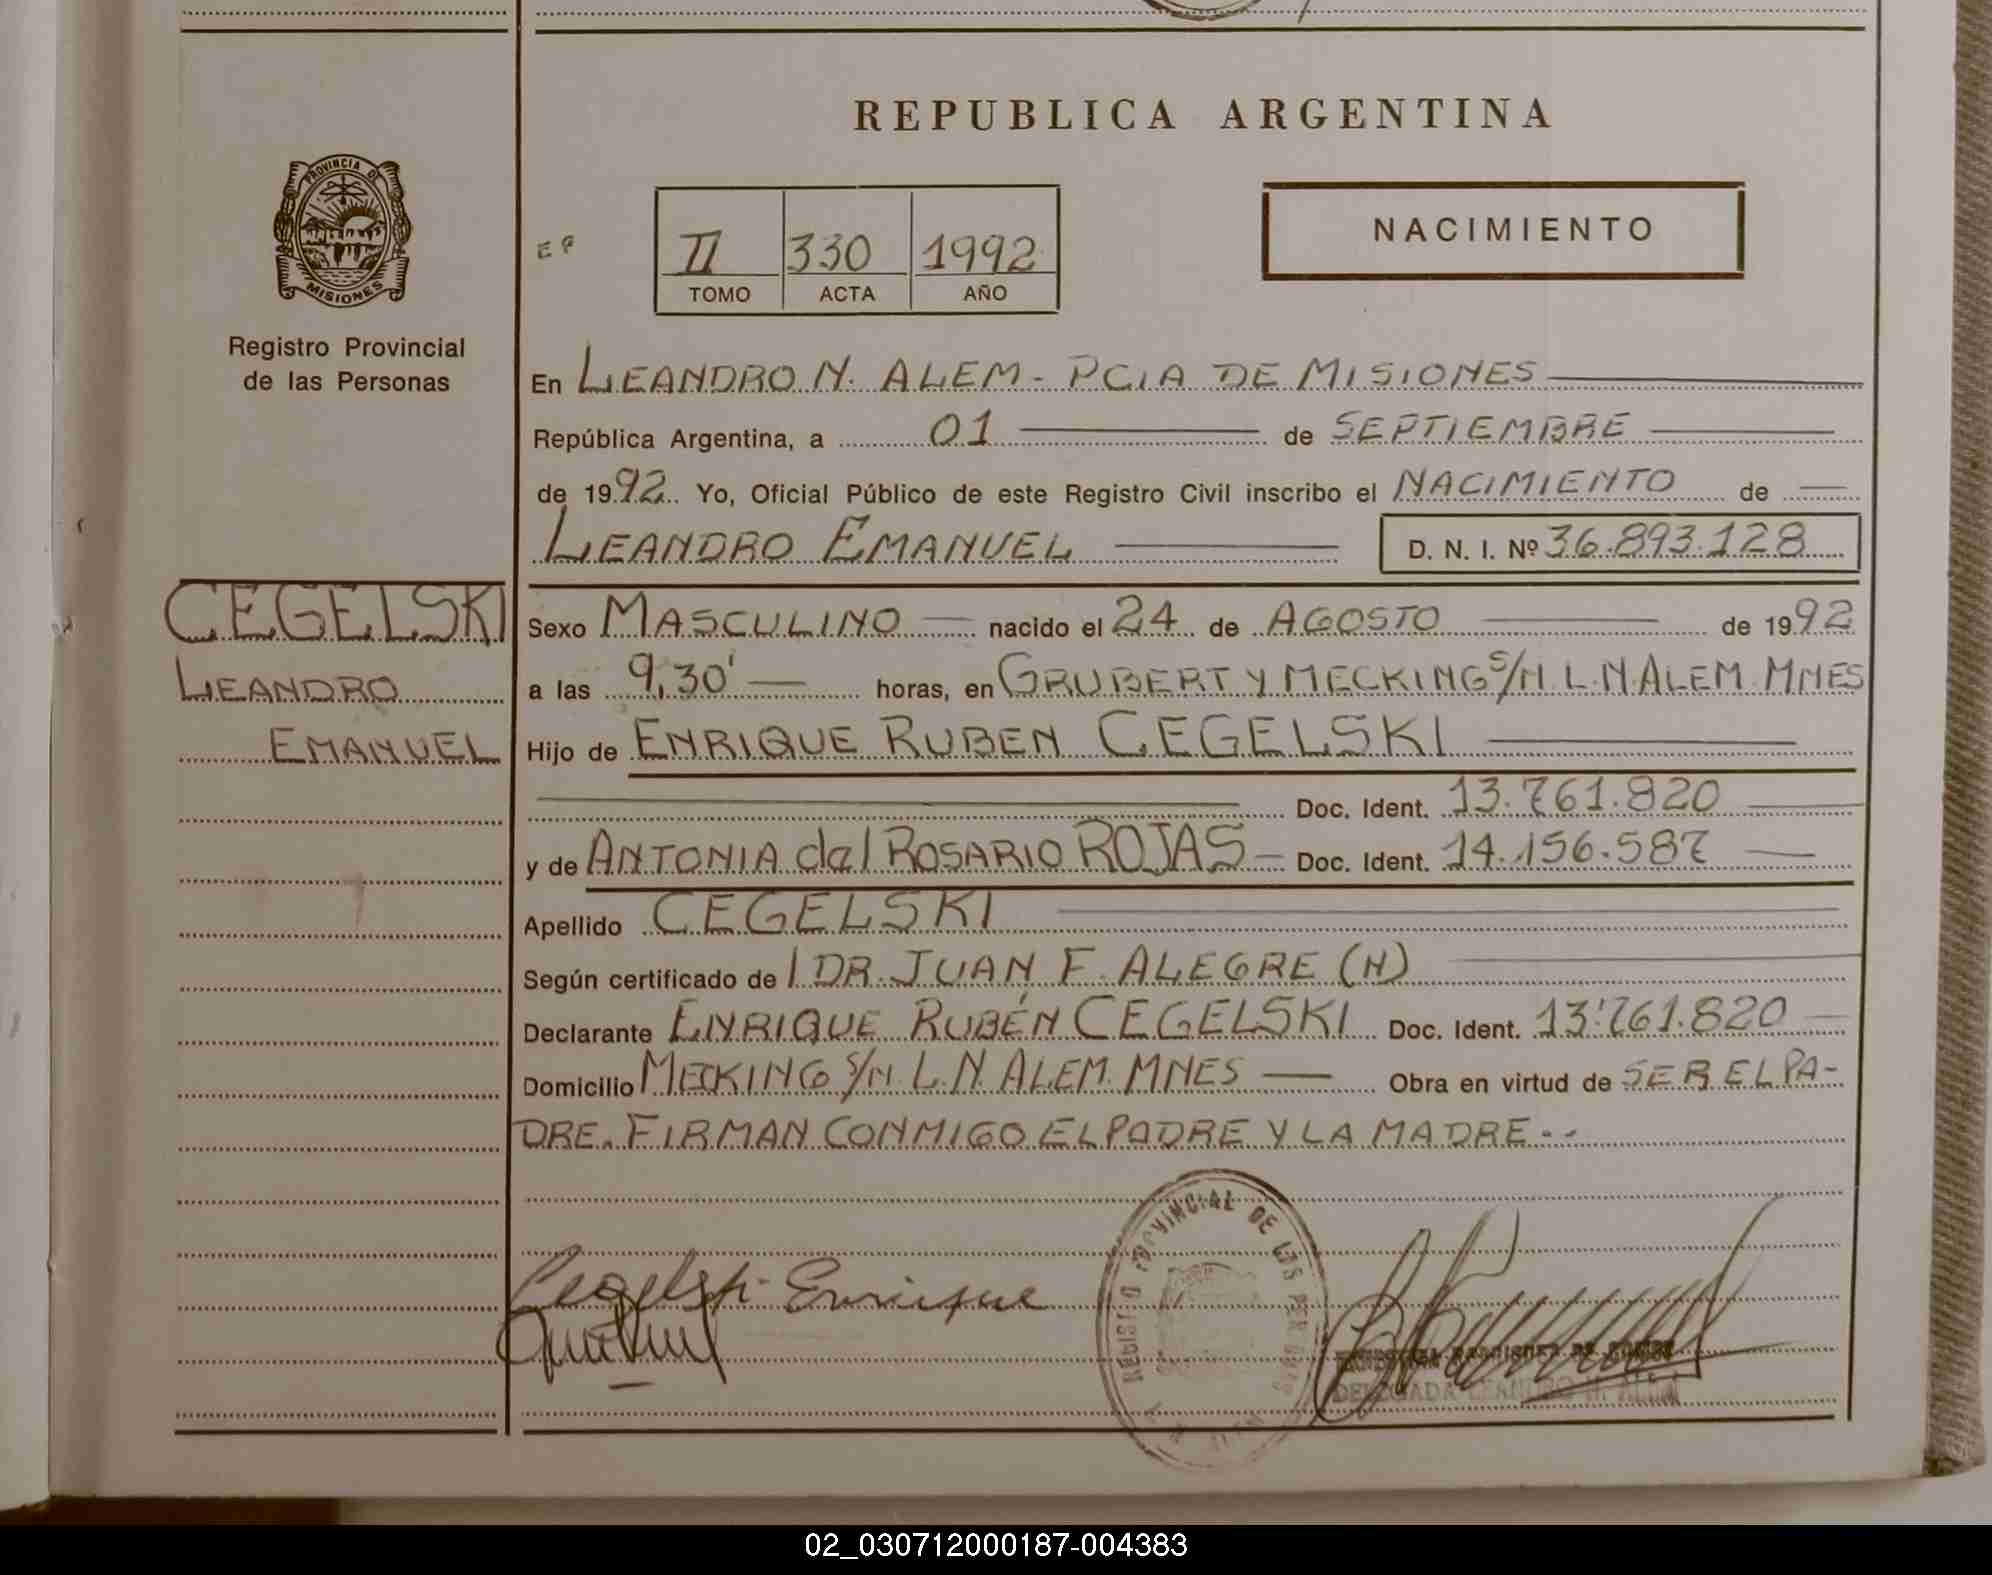 REPUBLICA ARGENTINA
PROVINCIA DE
MISIONES
Registro Provincial
de las Personas
II 330 1992
TOMO ACTA AÑO
NACIMIENTO
En LEANDRO N. ALEM - PCIA DE MISIONES
República Argentina, a 01 de SEPTIEMBRE
de 1992 Yo, Oficial Público de este Registro Civil inscribo el NACIMIENTO de
LEANDRO EMANUEL D. N. I. Nº 36.893.128
CEGELSKI
LEANDRO
EMANUEL
Sexo MASCULINO nacido el 24 de AGOSTO de 1992
a las 9,30' horas, en GRUBERT Y MECKING S/N L.N ALEM MNES
Hijo de ENRIQUE RUBEN CEGELSKI
Doc. Ident. 13.761.820
y de ANTONIA del ROSARIO ROJAS Doc. Ident. 14.156.587
Apellido CEGELSKI
Según certificado de l DR. JUAN F. ALEGRE (N)
Declarante ENRIQUE RUBÉN CEGELSKI Doc. Ident. 13.761.820
Domicilio MECKING S/N L.N. ALEM. MNES Obra en virtud de SER EL PA-
DRE. FIRMAN CONMIGO EL PADRE Y LA MADRE--
Cegelski Enrique
REGISTRO PROVINCIAL DE LAS PERSONAS
DELEGADA LEANDRO N. ALEM
02_030712000187-004383